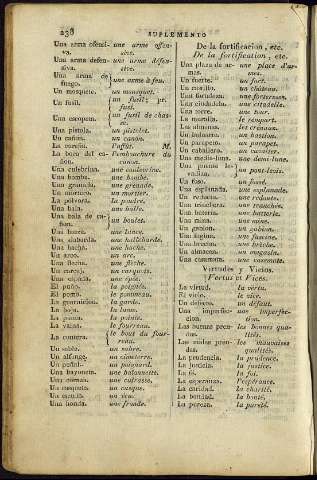 238 SUPLEMENTO
Una arma ofensi- une arme offen-
va. sive.
Una arma defen- une arme défen-
siva. sive.
Una arma de une arme à feu.
fuego.
Un mosquete. un mousquet.
Un fusil. un fusil; pr.
fusi.
Una escopeta. un fusil de chas-
se.
Una pistola. un pistolet.
Un cañon. un canon.
La cureña. l'affût. M.
La boca del ca- l'embouchure du
ñon. canon.
Una culebrina. une coulevrine.
Una bomba. une bombe.
Una granada. une grenade.
Un mortero. un mortier.
La pólvora. la poudre.
Una bala. une balle.
Una bala de ca- un boulet.
ñon.
Una lanza. une lance.
Una alabarda. une hallebarde.
Una hacha. une hache.
Un arco. un arc.
Una flecha. une flèche.
Un carcaj. un carquois.
Una espada. une épée.
El puño. la poignée.
El pomo. le pommeau.
La guarnicion. la garde.
La hoja. la lame.
La punta. la pointe.
La vaina. le fourreau.
La contera. le bout du four-
reau.
Un sable. un sabre.
Un alfange. un cimeterre.
Un puñal. un poignard.
Una bayoneta. une baïonnette.
Una coraza. une cuirasse.
Un casquete. un casque.
Un escudo. un écu.
Una honda. une fronde.
De la fortificacion, etc.
De la fortification, etc.
Una plaza de ar- une place d'ar-
mas. mes.
Un fuerte. un fort.
Un castillo. un château.
Una fortaleza. une forteresse.
Una ciudadela. une citadelle.
Una torre. une tour.
La muralla. le rempart.
Las almenas. les créneaux.
Un baluarte. un bastion.
Un parapeto. un parapet.
Un caballero. un cavalier.
Una media-luna. une demi-lune.
Una puente le- un pont-levis.
vadiza.
Un foso. un fossé.
Una esplanada. une esplanade.
Un reducto. une redoute.
Una trinchera. une tranchée.
Una batería. une batterie.
Una mina. une mine.
Un gavion. un gabion.
Una fagina. une fascine.
Una brecha. une brèche.
Un almacen. un magasin.
Una casamata. une casemate.
Virtudes y Vicios.
Vertus et Vices.
La virtud. la vertu.
El vicio. le vice.
Un defecto. un défaut.
Una imperfec- une imperfec-
cion. tion.
Las buenas pren- les bonnes qua-
das. lités.
Las malas pren- les mauvaises
das. qualités.
La prudencia. la prudence.
La justicia. la justice.
La fé. la foi.
La esperanza. l'espérance.
La caridad. la charité.
La bondad. la bonté.
La pureza. la pureté.